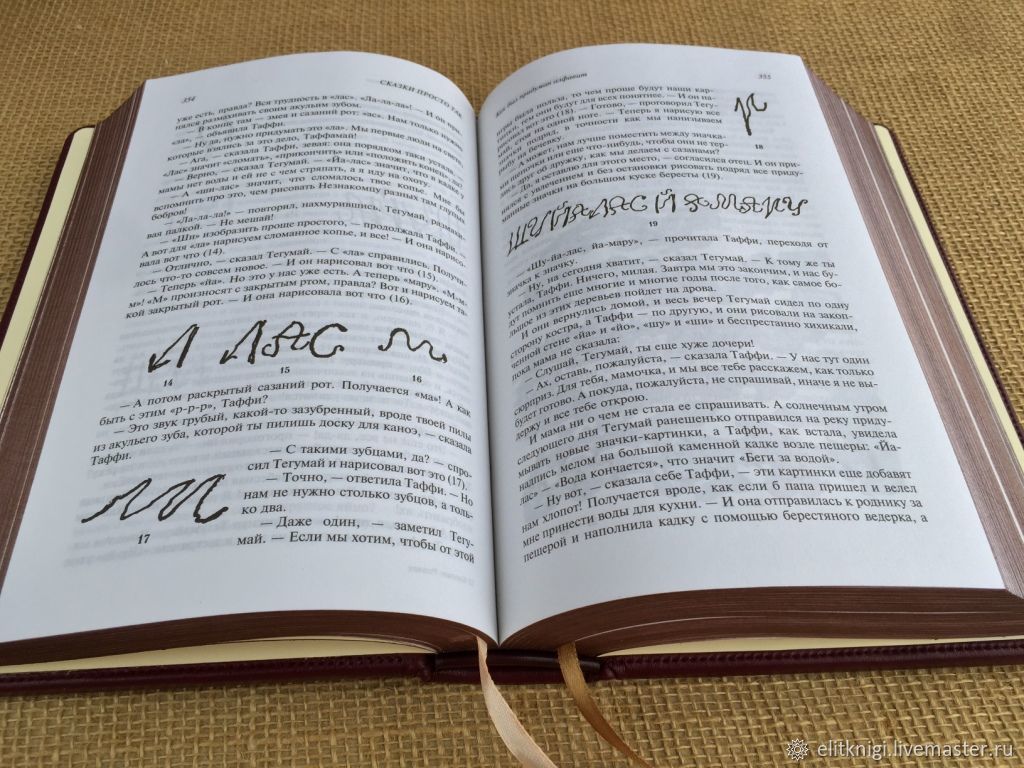 354
СКАЗКИ ПРОСТО ТАК
уже есть, правда? Вся трудность в «лас». «Ла-ла-ла!» — И он при-
нялся размахивать своим акульим зубом.
— В конце там — змея и сазаний рот: «ас». Нам только нужно
«ла», — объявила Таффи.
— Ну да, нужно придумать это «ла». Мы первые люди на свете,
которые взялись за это дело, Таффамай!
— Ага, — сказала Таффи, зевая: она порядком так устала. —
«Лас» значит «сломать», «прикончить» или «положить конец», да?
— Верно, — сказал Тегумай. — «Йа-лас» значит, что в кадке у
мамы нет воды и ей не с чем стряпать, а я иду на охоту.
— А «ши-лас» значит, что сломалось твое копье. Мне бы
вспомнить про это, чем рисовать Незнакомцу разных там глупых
бобров!
— «Ла-ла-ла!» — повторил, нахмурившись, Тегумай, размахи-
вая палкой. — Не мешай!
— «Ши» изобразить проще простого, — продолжала Таффи. —
А вот для «ла» нарисуем сломанное копье, и все! — И она нарисо-
вала вот что (14).
— Отлично, — сказал Тегумай. — С «ла» справились. Получи-
лось что-то совсем новое. — И он нарисовал вот что (15).
— Теперь «йа». Но это у нас уже есть. А теперь «мару». «М-м-
м»! «М» произносят с закрытым ртом, правда? Вот и нарисуем та-
кой закрытый рот. — И она нарисовала вот что (16).
14
15
16
— А потом раскрытый сазаний рот. Получается «ма»! А как
быть с этим «р-р-р», Таффи?
— Это звук грубый, какой-то зазубренный, вроде твоей пилы
из акульего зуба, которой ты пилишь доску для каноэ, — сказала
Таффи.
— С такими зубцами, да? — спро-
сил Тегумай и нарисовал вот это (17).
— Точно, — ответила Таффи. — Но
нам не нужно столько зубцов, а толь-
ко два.
— Даже один, — заметил Тегу-
май. — Если мы хотим, чтобы от этой
17
Как был придуман алфавит
355
штуки была польза, то чем проще будут наши кар-
тинки, тем они будут для всех понятнее. — И он на-
рисовал вот это (18). — Готово, — проговорил Тегу-
май, стоя на одной ноге. — Теперь я нарисую все
значки подряд, в точности как мы нанизываем
рыбу на бечевку.
— А может, нам лучше поместить между значка-
ми щепочки или еще что-нибудь, чтобы они не тер-
лись друг об дружку, как мы делаем с сазанами?
— Да, я оставлю для этого место, — согласился отец. И он при-
нялся с увлечением и без остановки рисовать подряд все приду-
манные значки на большом куске бересты (19).
18
19
— «Шу-йа-лас, йа-мару», — прочитала Таффи, переходя от
значка к значку.
— Ну, на сегодня хватит, — сказал Тегумай. — К тому же ты
устала, Таффи. Ничего, милая. Завтра мы это закончим, и нас бу-
дут помнить еще многие и многие годы после того, как самое бо-
льшое из этих деревьев пойдет на дрова.
И они вернулись домой, и весь вечер Тегумай сидел по одну
сторону костра, а Таффи — по другую, и они рисовали на закоп-
ченной стене «йа» и «йо», «шу» и «ши» и беспрестанно хихикали,
пока мама не сказала:
— Слушай, Тегумай, ты еще хуже дочери!
— Ах, оставь, пожалуйста, — сказала Таффи. — У нас тут один
сюрприз. Для тебя, мамочка, и мы все тебе расскажем, как только
будет готово. А покуда, пожалуйста, не спрашивай, иначе я не вы-
держу и все тебе открою.
И мама ни о чем не стала ее спрашивать. А солнечным утром
следующего дня Тегумай ранешенько отправился на реку приду-
мывать новые значки-картинки, а Таффи, как встала, увидела
надпись мелом на большой каменной кадке возле пещеры: «Йа-
лас» — «Вода кончается», что значит «Беги за водой».
— Ну вот, — сказала себе Таффи, — эти картинки еще добавят
нам хлопот! Получается вроде, как если б папа пришел и велел
мне принести воды для кухни. — И она отправилась к роднику за
пещерой и наполнила кадку с помощью берестяного ведерка, а
elitknigi.livemaster.ru